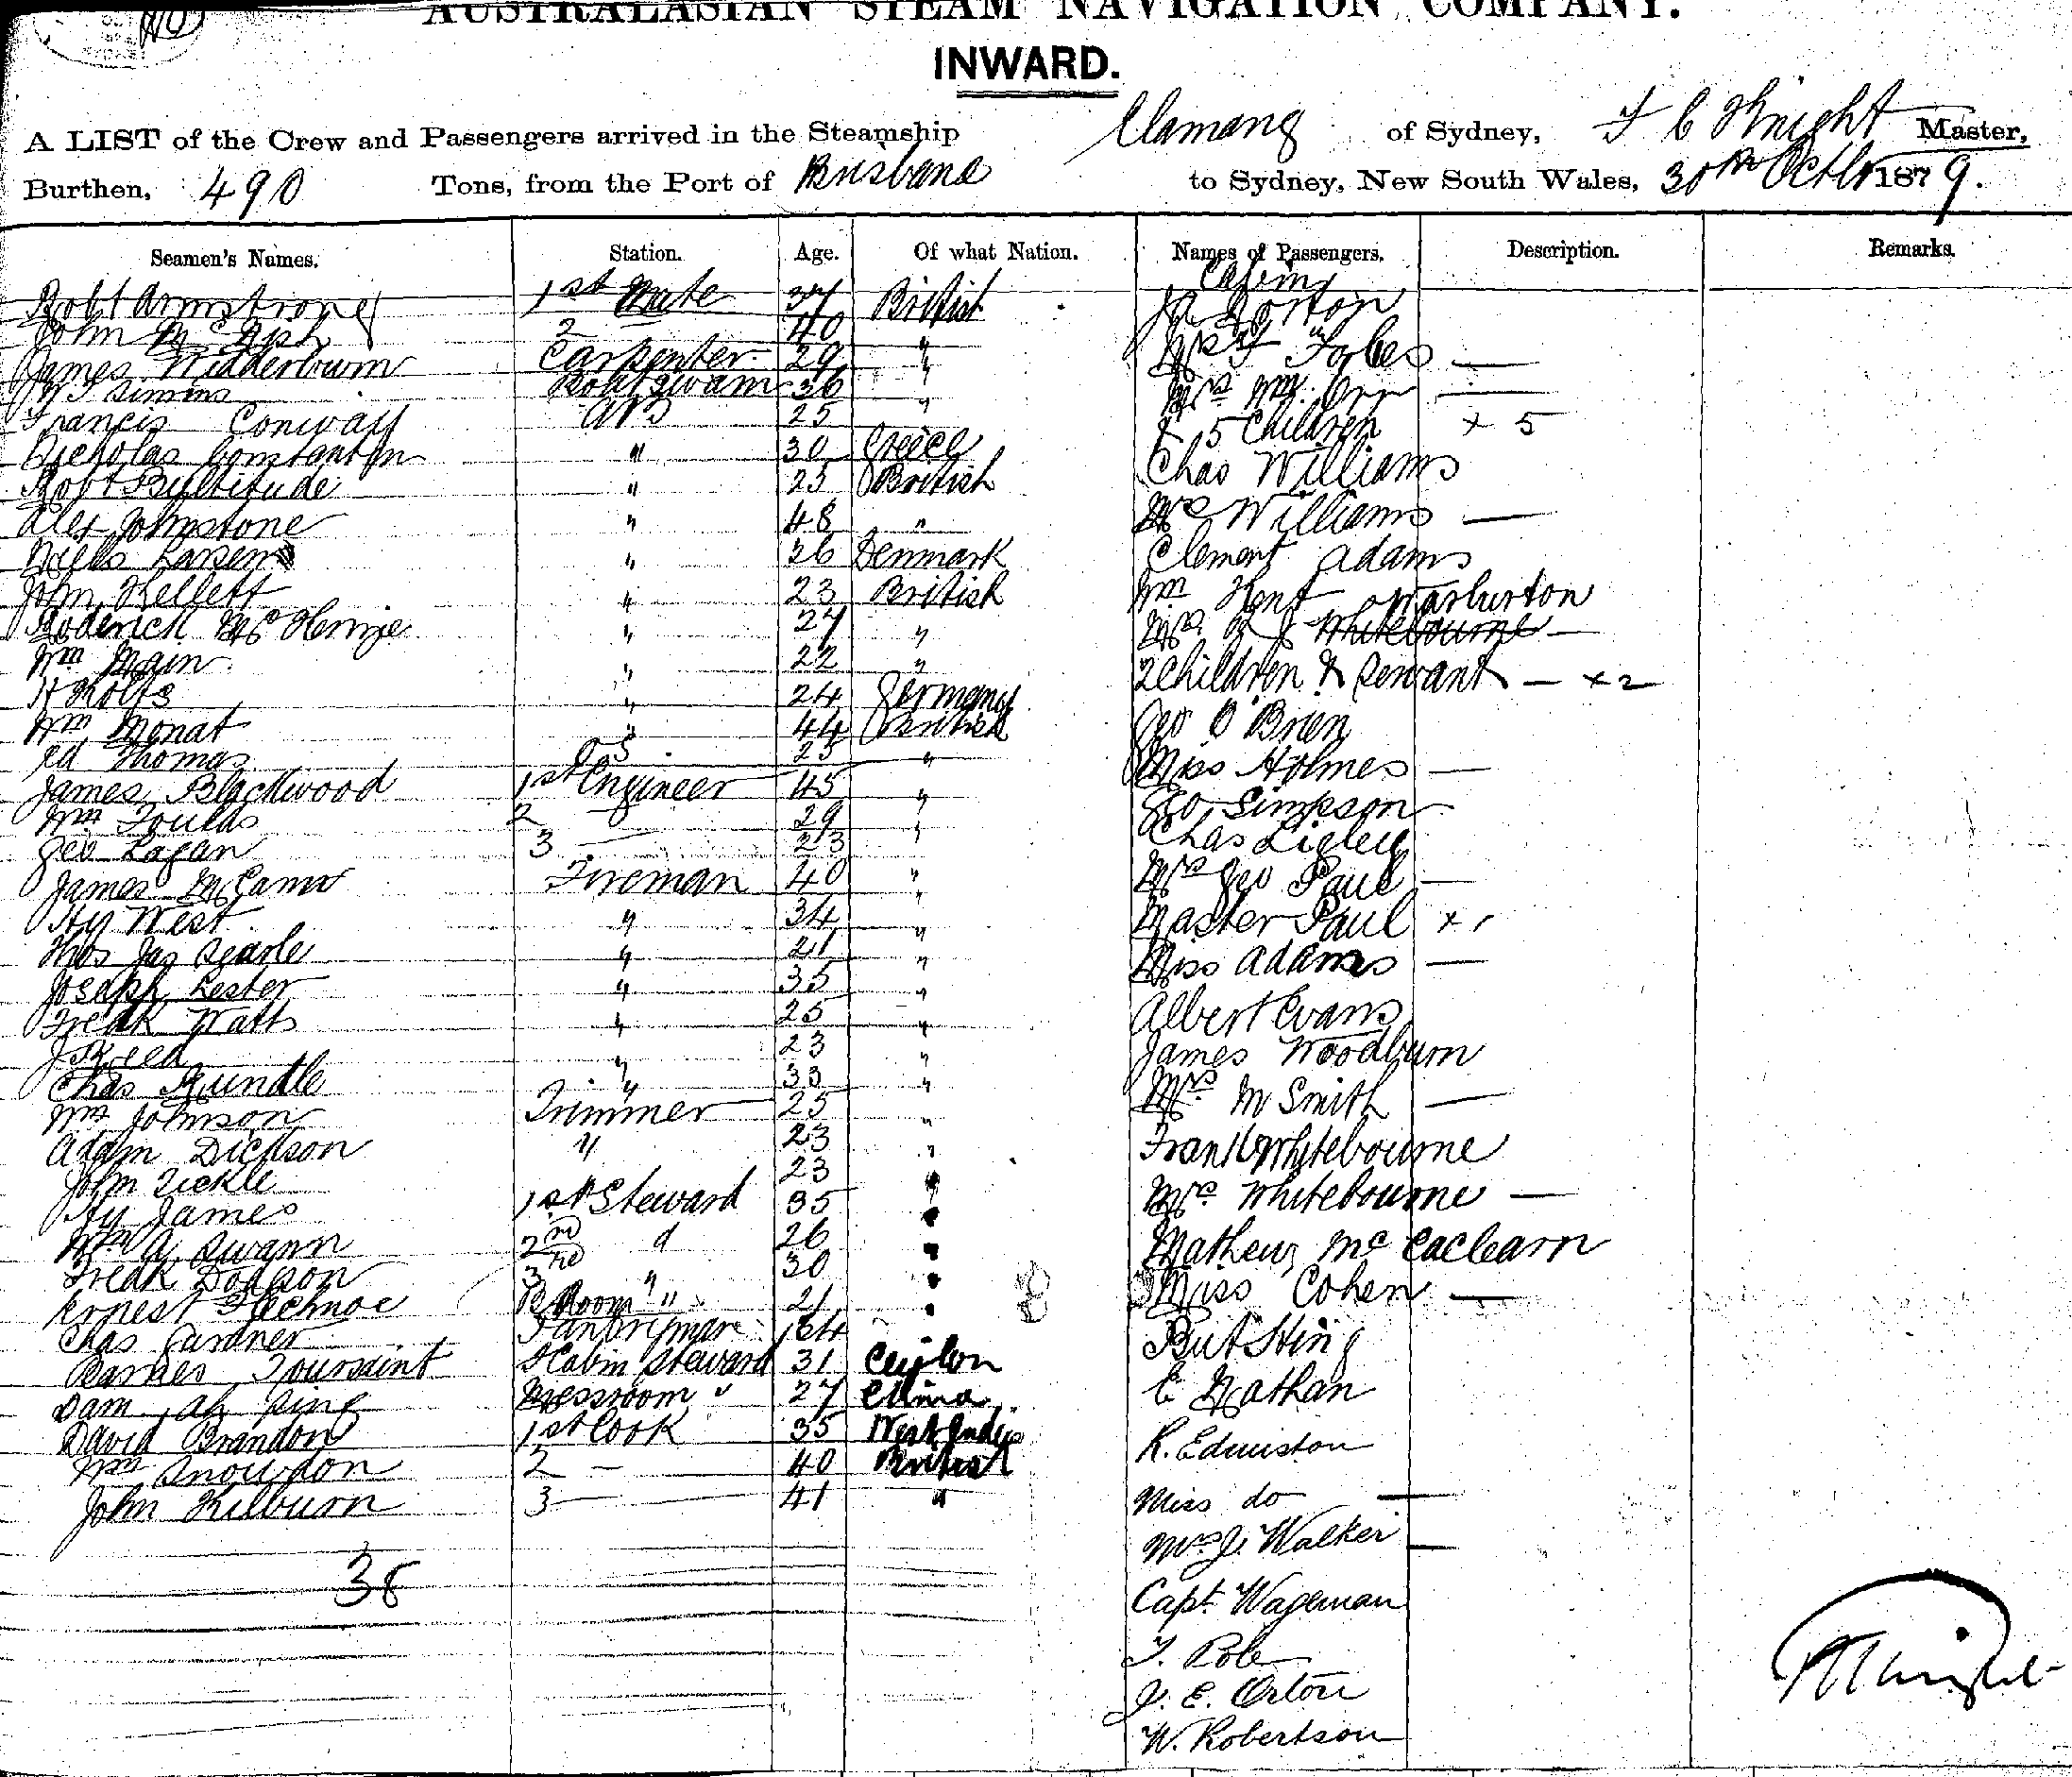 AUSTRALASIAN STEAM NAVIGATION COMPANY.
INWARD.
A LIST of the Crew and Passengers arrived in the Steamship Elamang of Sydney, F C Knight Master,
Burthen, 490 Tons, from the Port of Brisbane to Sydney, New South Wales, 30th Octbr 1879.
Seamen's Names. Station. Age. Of what Nation. Names of Passengers. Description. Remarks.
Cabin
Robt Armstrong 1st Mate 37 British Gorton
John 2 40 "
James Widderburn Carpenter 29 " Forbes —
Simms 36 Mrs Wm Orr —
Francis Conway AB 25 " & 5 Children + 5
Nicholas Constantin " 30 Greece Chas Williams
Robt Bultitude " 25 British
Alex Johnstone " 48 " Mrs Williams —
Niels Larsen " 36 Denmark Clement Adams
John Kellett " 23 British Wm Kent Warburton
Roderick McKenzie " 27 " Mrs Whitebourne —
Wm Main " 22 " 2 Children & Servant — x 2
H Holts " 24 Germany
Wm Monat " 44 British Geo O'Brien
Ed Thomas OS 25 " Miss Holmes —
James Blackwood 1st Engineer 45 " Geo Simpson
Wm Foulds 2 — 29 "
Geo Logan 3 — 23 Chas Lilley
James Fireman 40 " Mrs Geo Paul —
Hy West " 34 " Master Paul x 1
Thos Jas Searle " 21 " Miss Adams —
Joseph Lester " 35 "
Fredk Watts " 25 " Albert Evans
J Reed " 23 " James Woodburn
Chas Rundle " 33 " Mrs M Smith —
Wm Johnson Trimmer 25 "
Adam Dickson " 23 " Frank Whitebourne
John Tickle 23 "
Hy James 1st Steward 35 " Mrs Whitebourne —
Wm A Swann 2nd " 26 " Mathew
Fredk Dodson 3rd " 30 " Miss Cohen —
Ernest B Room " 21 "
Chas Gardner Pantryman But Hing
Toussaint Cabin Steward 31 Ceylon
Dam Ah Ping Messroom " 27 China E Nathan
David Brandon 1st Cook 35 West Indies
Wm Snowdon 2 — 40 British R. Edmiston
John Kilburn 3 — 41 " Miss do —
Mrs J. Walker —
38 Capt. Wageman
T. Pole
J. E. Orton
W. Robertson